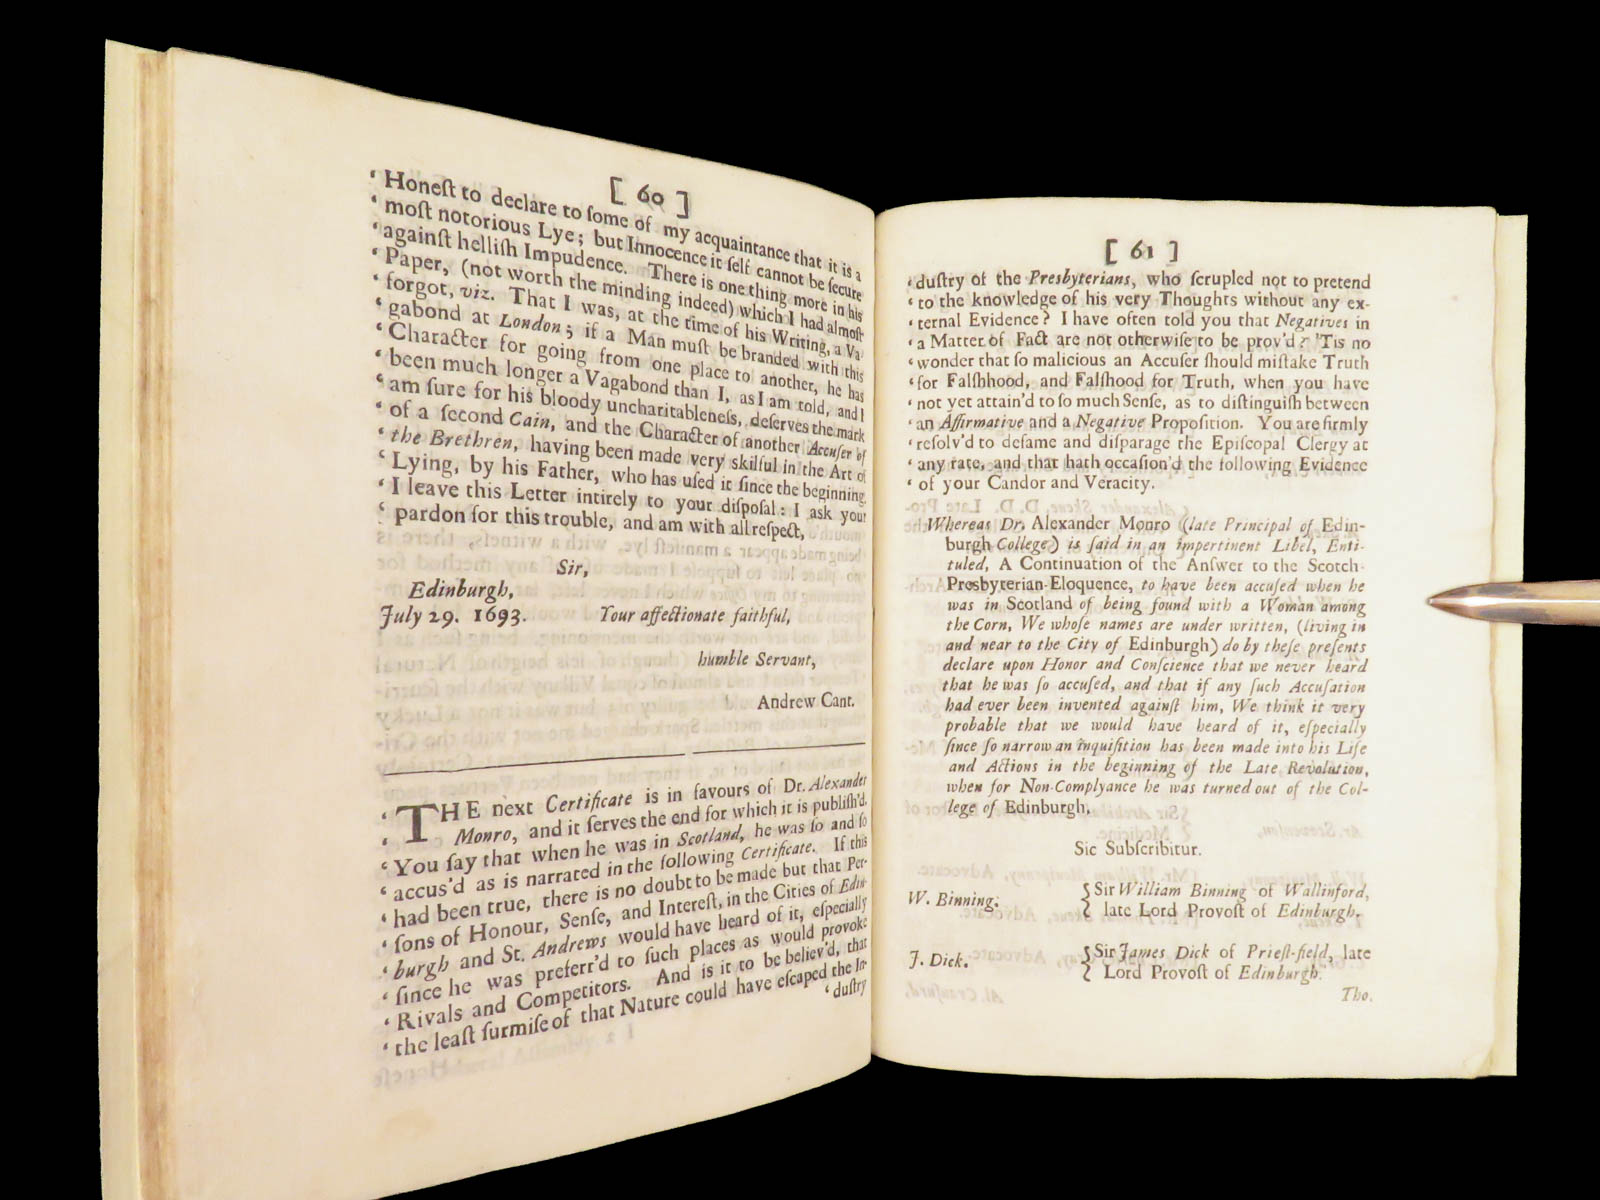 [ 60 ]
‘ Honeſt to declare to ſome of my acquaintance that it is a
‘ moſt notorious Lye; but Innocence it ſelf cannot be ſecure
‘ againſt helliſh Impudence. There is one thing more in his
‘ Paper, (not worth the minding indeed) which I had almoſt
‘ forgot, viz. That I was, at the time of his Writing, a Va-
‘ gabond at London; if a Man muſt be branded with this
‘ Character for going from one place to another, he has
‘ been much longer a Vagabond than I, as I am told, and I
‘ am ſure for his bloody uncharitableneſs, deſerves the mark
‘ of a ſecond Cain, and the Character of another Accuſer of
‘ the Brethren, having been made very skilful in the Art of
‘ Lying, by his Father, who has uſed it ſince the beginning.
‘ I leave this Letter intirely to your diſpoſal: I ask your
‘ pardon for this trouble, and am with all reſpect,
Sir,
Edinburgh,
July 29. 1693. Your affectionate faithful,
humble Servant,
Andrew Cant.
‘ THE next Certificate is in favours of Dr. Alexander
‘ Monro, and it ſerves the end for which it is publiſh'd.
‘ You ſay that when he was in Scotland, he was ſo and ſo
‘ accus'd as is narrated in the following Certificate. If this
‘ had been true, there is no doubt to be made but that Per-
‘ ſons of Honour, Senſe, and Intereſt, in the Cities of Edin-
‘ burgh and St. Andrews would have heard of it, eſpecially
‘ ſince he was preferr'd to ſuch places as would provoke
‘ Rivals and Competitors. And is it to be believ'd, that
‘ the leaſt ſurmiſe of that Nature could have eſcaped the In-
‘ duſtry
[ 61 ]
‘ duſtry of the Presbyterians, who ſcrupled not to pretend
‘ to the knowledge of his very Thoughts without any ex-
‘ ternal Evidence? I have often told you that Negatives in
‘ a Matter of Fact are not otherwiſe to be prov'd? 'Tis no
‘ wonder that ſo malicious an Accuſer ſhould miſtake Truth
‘ for Falſhhood, and Falſhood for Truth, when you have
‘ not yet attain'd to ſo much Senſe, as to diſtinguiſh between
‘ an Affirmative and a Negative Propoſition. You are firmly
‘ reſolv'd to defame and diſparage the Epiſcopal Clergy at
‘ any rate, and that hath occaſion'd the following Evidence
‘ of your Candor and Veracity.
Whereas Dr. Alexander Monro (late Principal of Edin-
burgh College) is ſaid in an impertinent Libel, Enti-
tuled, A Continuation of the Anſwer to the Scotch
Presbyterian-Eloquence, to have been accuſed when he
was in Scotland of being found with a Woman among
the Corn, We whoſe names are under written, (living in
and near to the City of Edinburgh) do by theſe preſents
declare upon Honor and Conſcience that we never heard
that he was ſo accuſed, and that if any ſuch Accuſation
had ever been invented againſt him, We think it very
probable that we would have heard of it, eſpecially
ſince ſo narrow an inquiſition has been made into his Life
and Actions in the beginning of the Late Revolution,
when for Non-Complyance he was turned out of the Col-
lege of Edinburgh,
Sic Subſcribitur.
W. Binning. { Sir William Binning of Wallinford,
late Lord Provoſt of Edinburgh.
J. Dick. { Sir James Dick of Prieſt-field, late
Lord Provoſt of Edinburgh.
Tho.